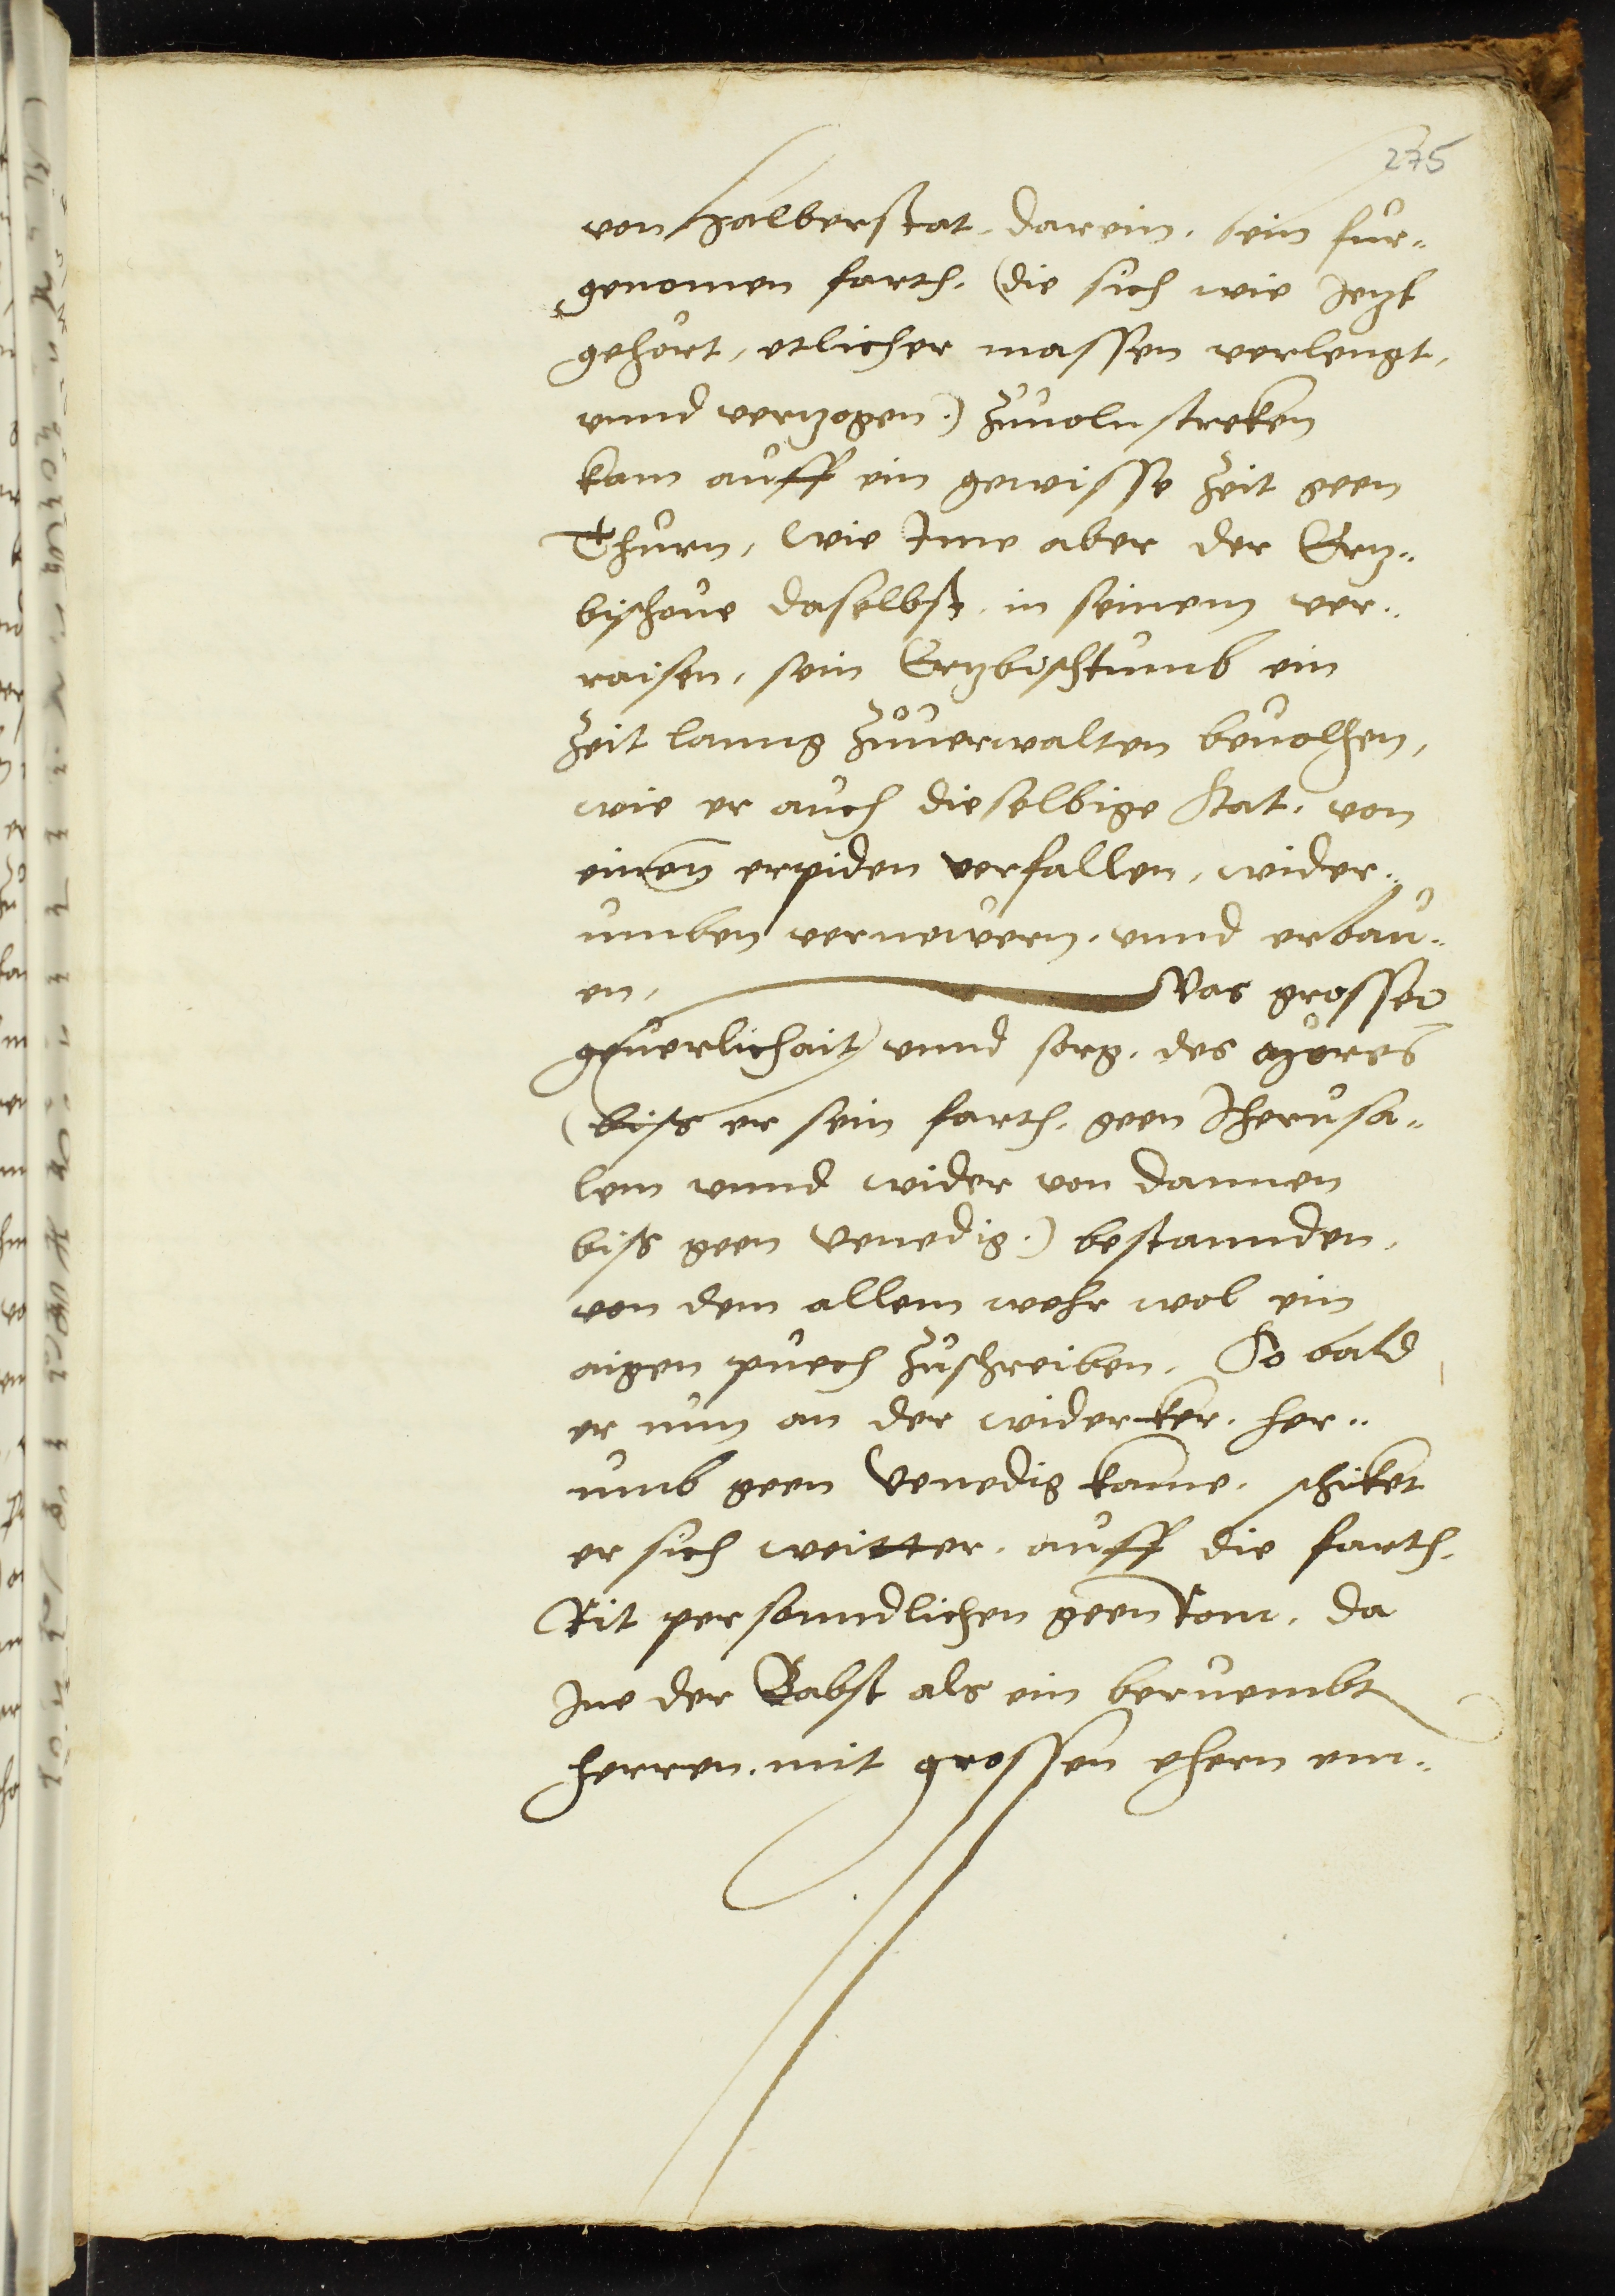 275
von Halberstat, darein, sein fur-
genomen farth, (die sich wie Jetzt
gehört, etlicher massen verlengt,
vnnd vertzogen.) Zuuolnstreken
kam auff ein gewisse Zeit geen
Thurn, wie Ime aber der Ertz-
bischoue daselbst, in seinem ver-
raisen, sein Ertzbischtumb ein
Zeit lanng Zůuerwalten beuolhen,
wie er auch dieselbige Stat, von
einen erpiden verfallen, wider-
umben vernewern, vnnd erbau-
en, Was grosser
geuerlichait vnnd sorg, des
(biss er sein farth, geen Jherusa-
lem vnnd wider von dannen
biss geen Venedig.) bestannden,
von dem allem wehr wol ein
aigen puech Zuschreiben, So bald
er nun an der widerker, her-
umb geen Venedig kame, schiket
er sich weitter, auff die farth,
Rit personndlichen geen Rom, da
Ine der Babst als ein beruembt
herren, mit grossen ehern em-